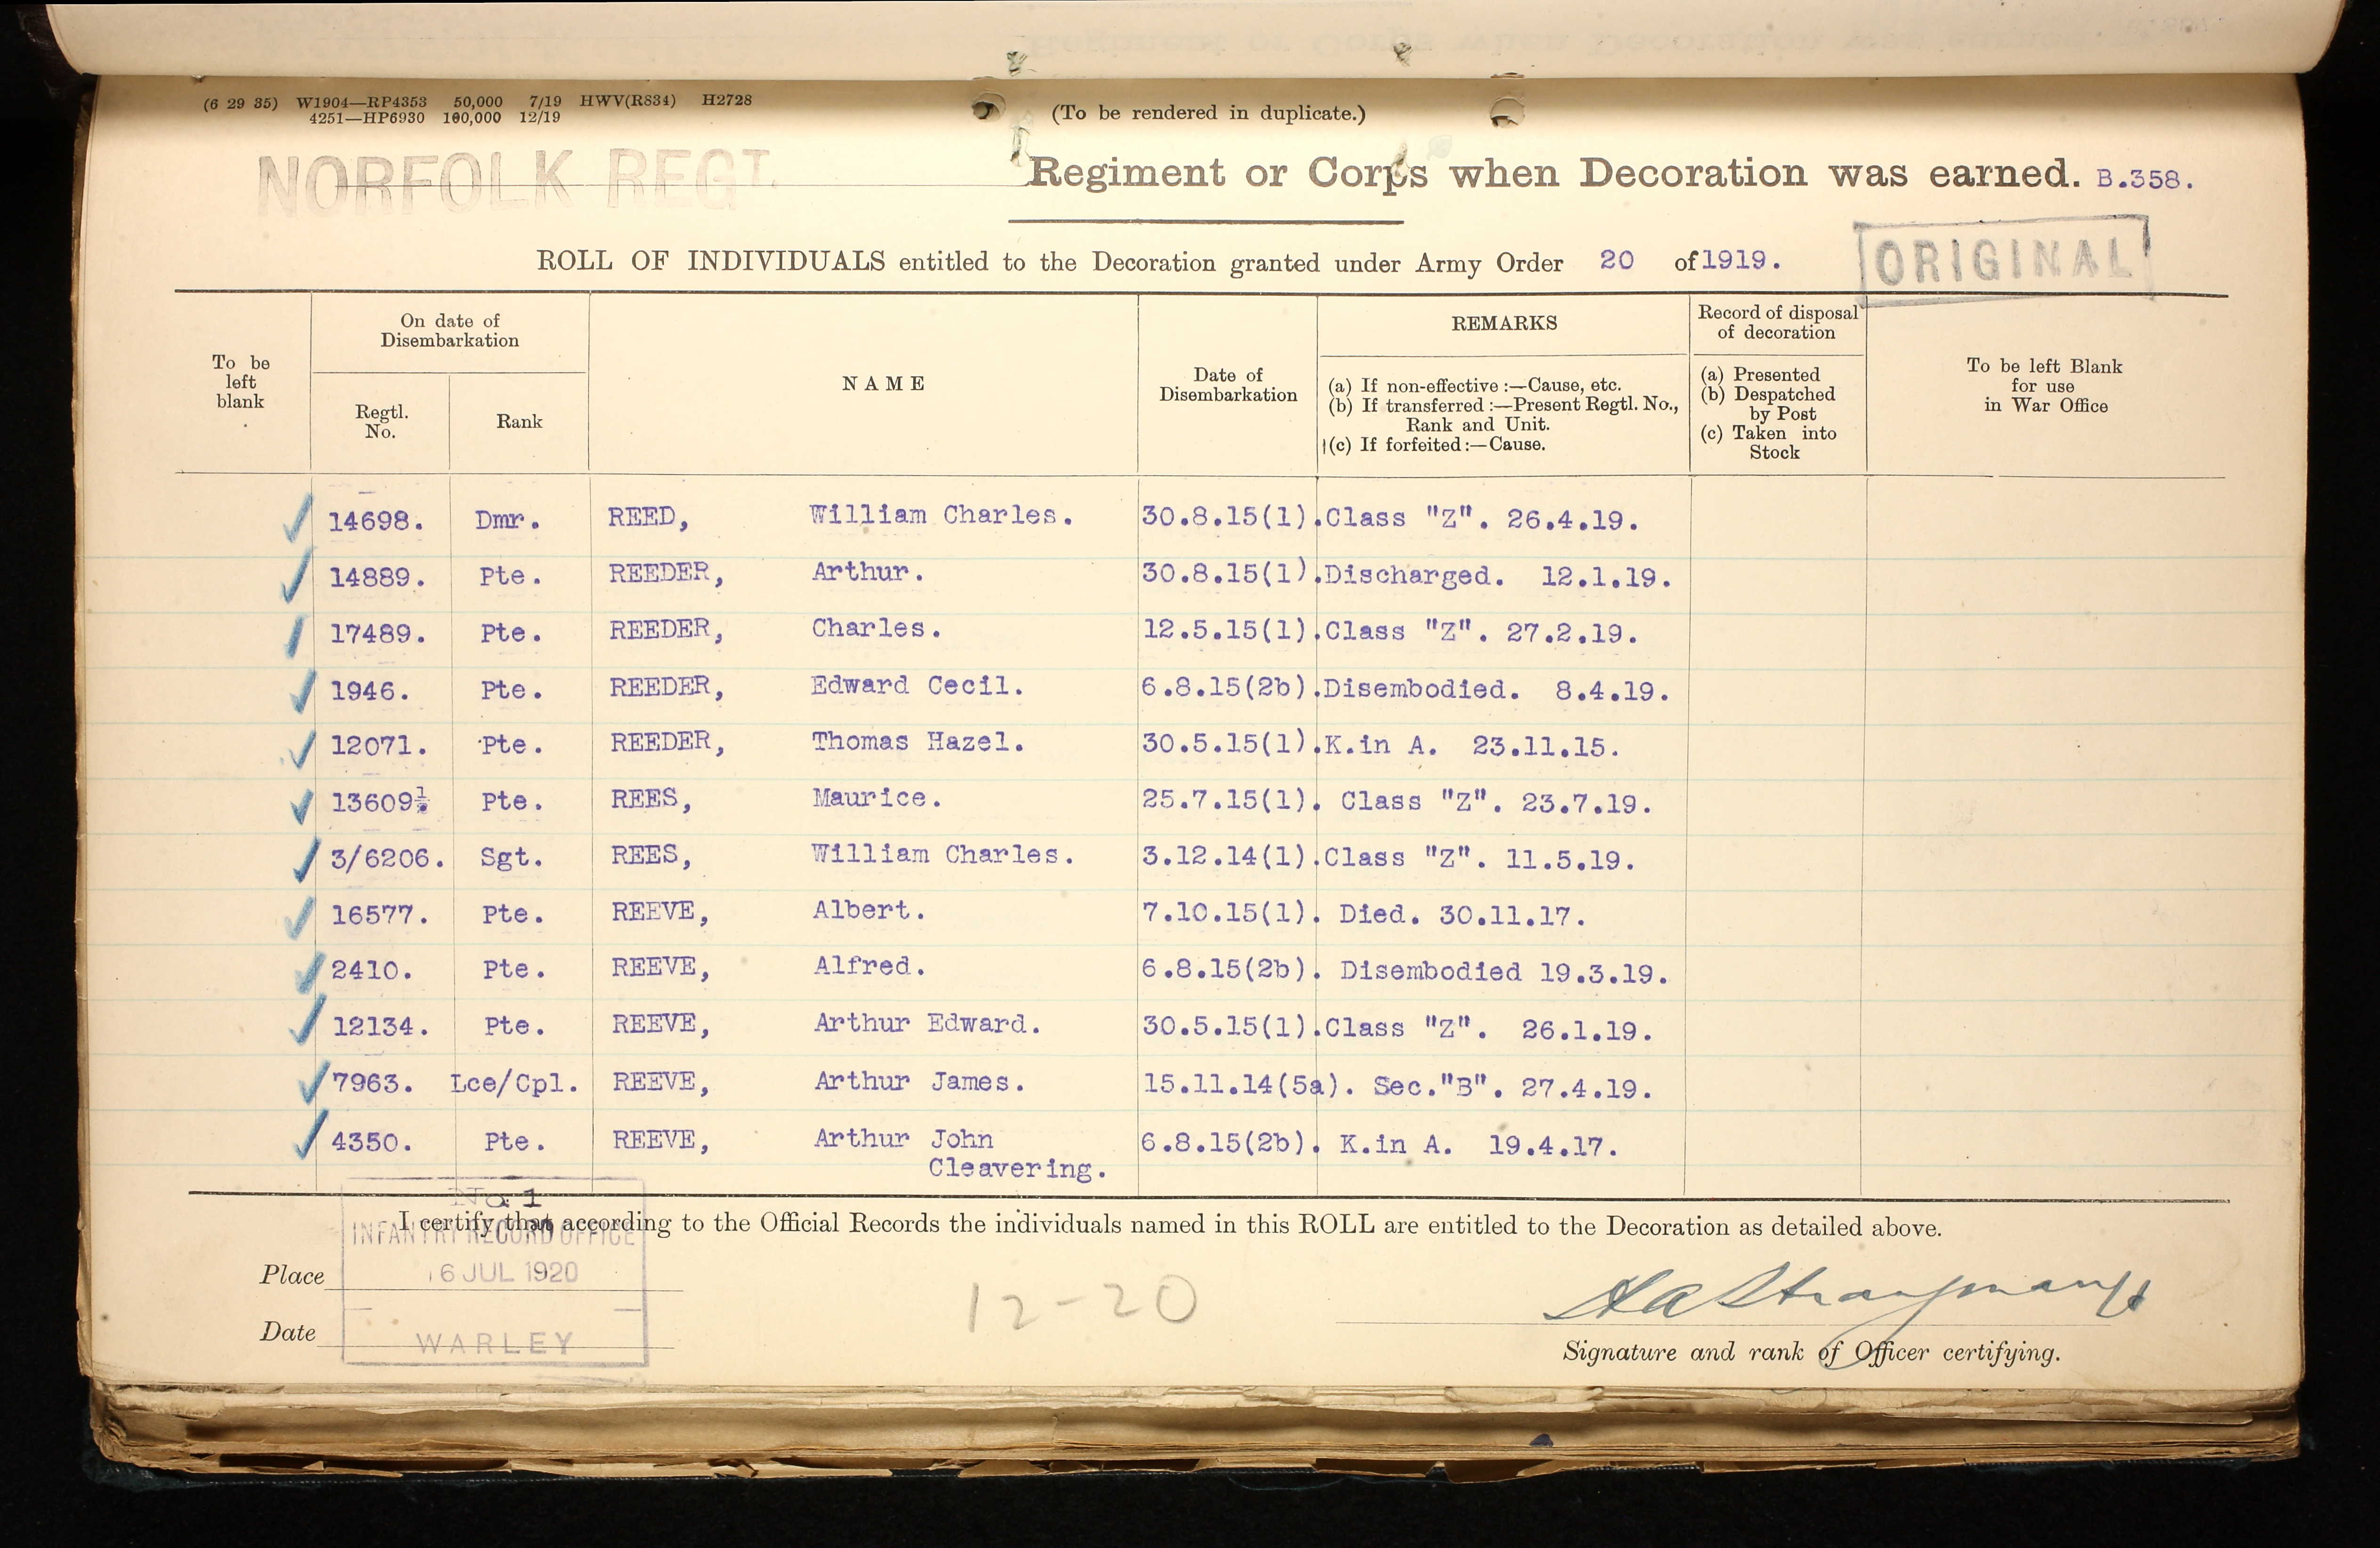 (6 29 35) W1904—RP4353 50,000 7/19 HWV(R834) H2728
4251—HP6930 100,000 12/19
(To be rendered in duplicate.)
NORFOLK REGT.
Regiment or Corps when Decoration was earned. B.358.
ROLL OF INDIVIDUALS entitled to the Decoration granted under Army Order 20 of 1919.
ORIGINAL
To be left blank
On date of Disembarkation
Regtl. No.
Rank
NAME
Date of Disembarkation
REMARKS
(a) If non-effective :—Cause, etc.
(b) If transferred :—Present Regtl. No., Rank and Unit.
(c) If forfeited :—Cause.
Record of disposal of decoration
(a) Presented
(b) Despatched by Post
(c) Taken into Stock
To be left Blank for use in War Office
14698. Dmr. REED, William Charles. 30.8.15(1). Class "Z". 26.4.19.
14889. Pte. REEDER, Arthur. 30.8.15(1). Discharged. 12.1.19.
17489. Pte. REEDER, Charles. 12.5.15(1). Class "Z". 27.2.19.
1946. Pte. REEDER, Edward Cecil. 6.8.15(2b). Disembodied. 8.4.19.
12071. Pte. REEDER, Thomas Hazel. 30.5.15(1). K.in A. 23.11.15.
13609 Pte. REES, Maurice. 25.7.15(1). Class "Z". 23.7.19.
3/6206. Sgt. REES, William Charles. 3.12.14(1). Class "Z". 11.5.19.
16577. Pte. REEVE, Albert. 7.10.15(1). Died. 30.11.17.
2410. Pte. REEVE, Alfred. 6.8.15(2b). Disembodied 19.3.19.
12134. Pte. REEVE, Arthur Edward. 30.5.15(1). Class "Z". 26.1.19.
7963. Lce/Cpl. REEVE, Arthur James. 15.11.14(5a). Sec."B". 27.4.19.
4350. Pte. REEVE, Arthur John 6.8.15(2b). K.in A. 19.4.17.
Cleavering.
No. 1
I certify that according to the Official Records the individuals named in this ROLL are entitled to the Decoration as detailed above.
INFANTRY RECORD OFFICE
Place
6 JUL 1920
12-20
Date
WARLEY
Signature and rank of Officer certifying.